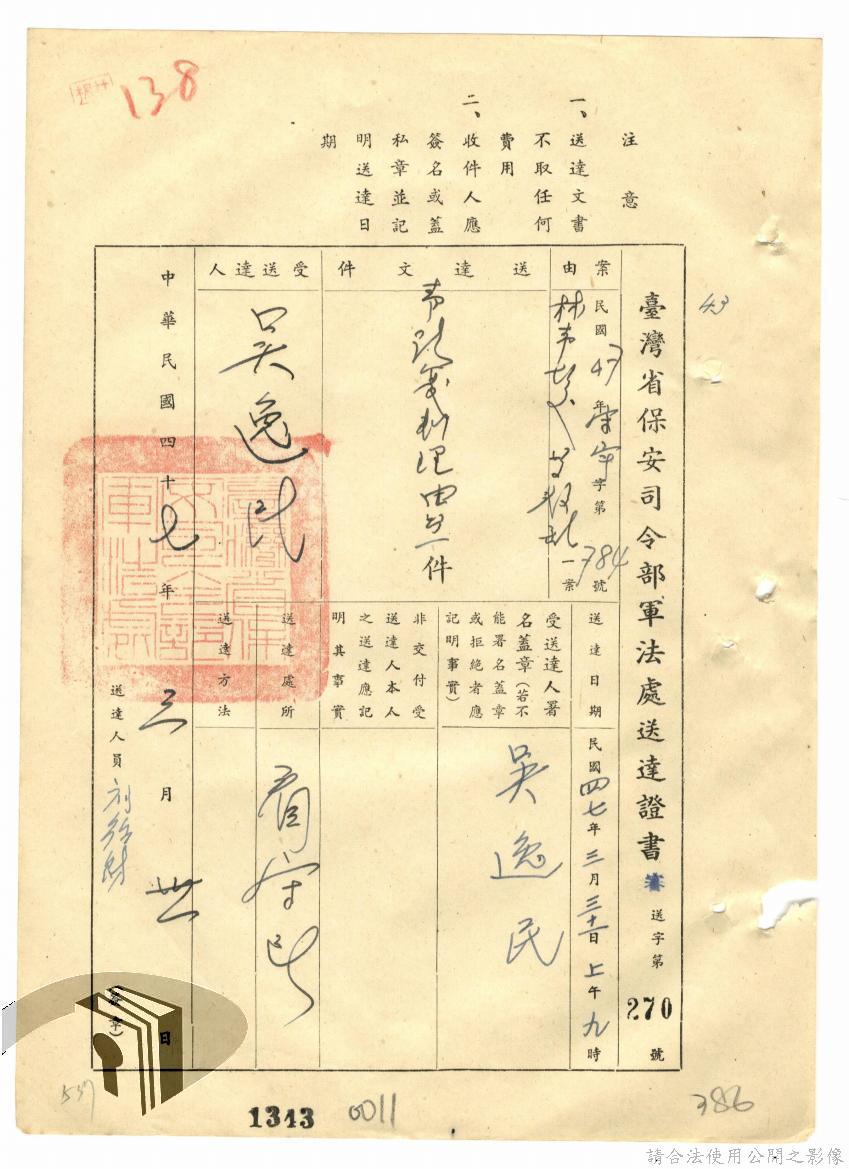 138
注意
一、送達文書
不取任何
費用
二、收件人應
簽名或蓋
私章並記
明送達日
期
43
臺灣省保安司令部軍法處送達證書 審 送字第 270 號
案由
民國 47 年 審 字第 784 號
一案
送達日期
民國四七年三月三十一日上午九時
送達文件
件
受送達人署
名蓋章(若不
能署名蓋章
或拒絕者應
記明事實)
吳逸民
非交付受
送達人本人
之送達應記
明其事實
受送達人
吳逸民
送達處所
看守所
送達方法
中華民國四十七年三月卅一日
送達人員
(簽章)
537
1343
0011
386
請合法使用公開之影像